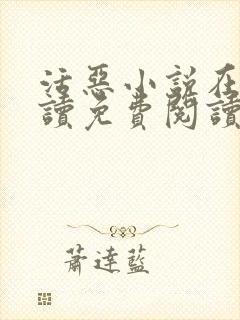 活惡小說在
讀免費閱讀
蕭達藍